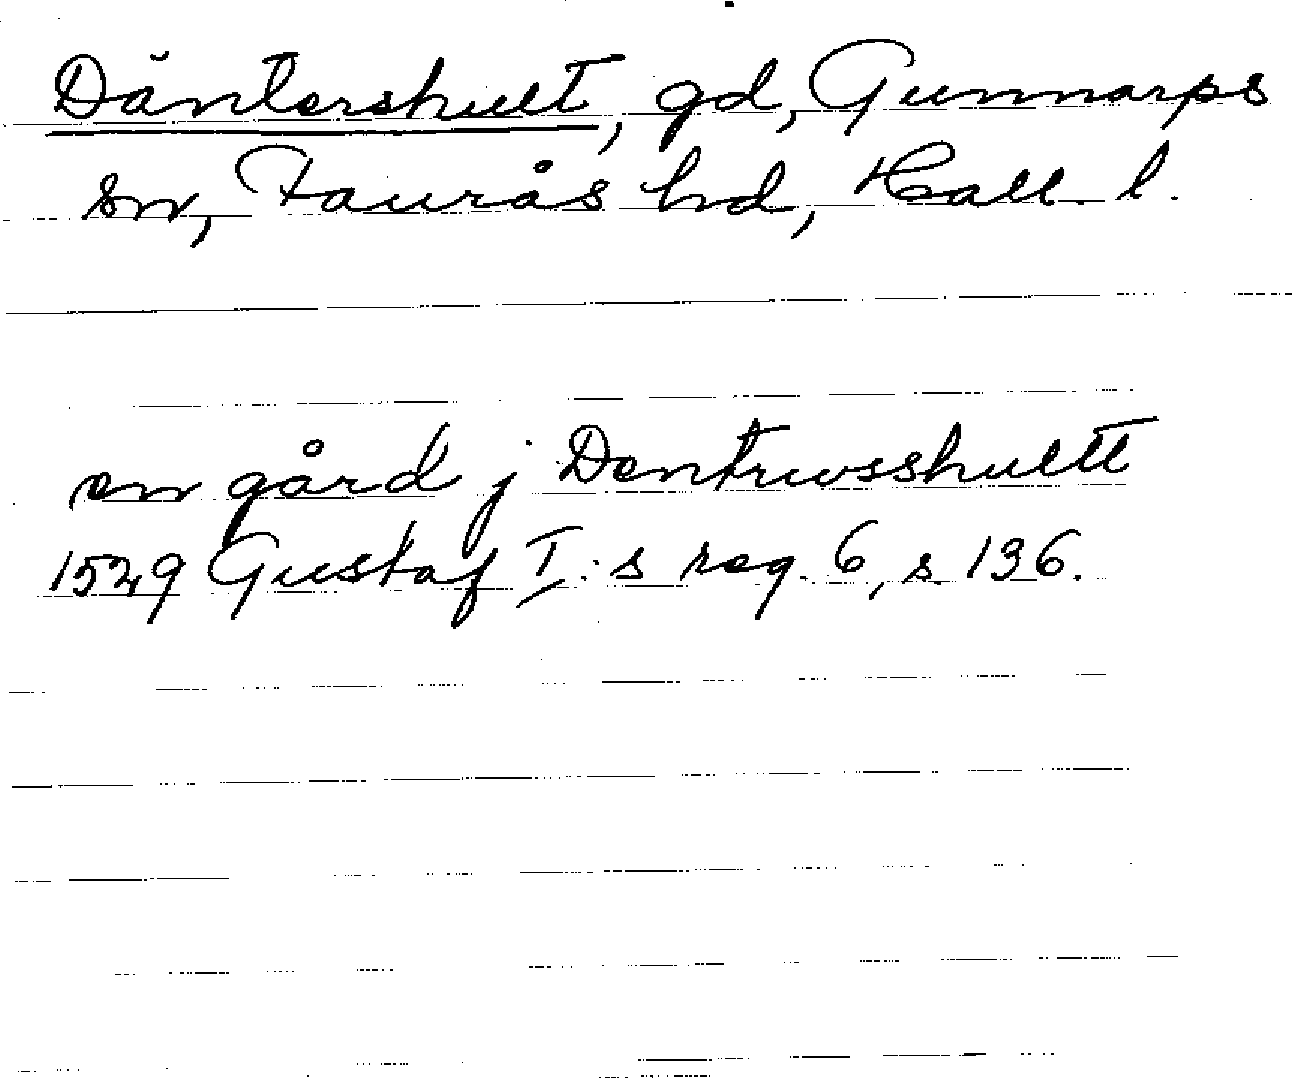 Däntershult, gd, Gunnarps
sn, Faurås hd, Hall. l.
en gård j Dentrwsshultt
1529 Gustaf I:s reg. 6, s 136.